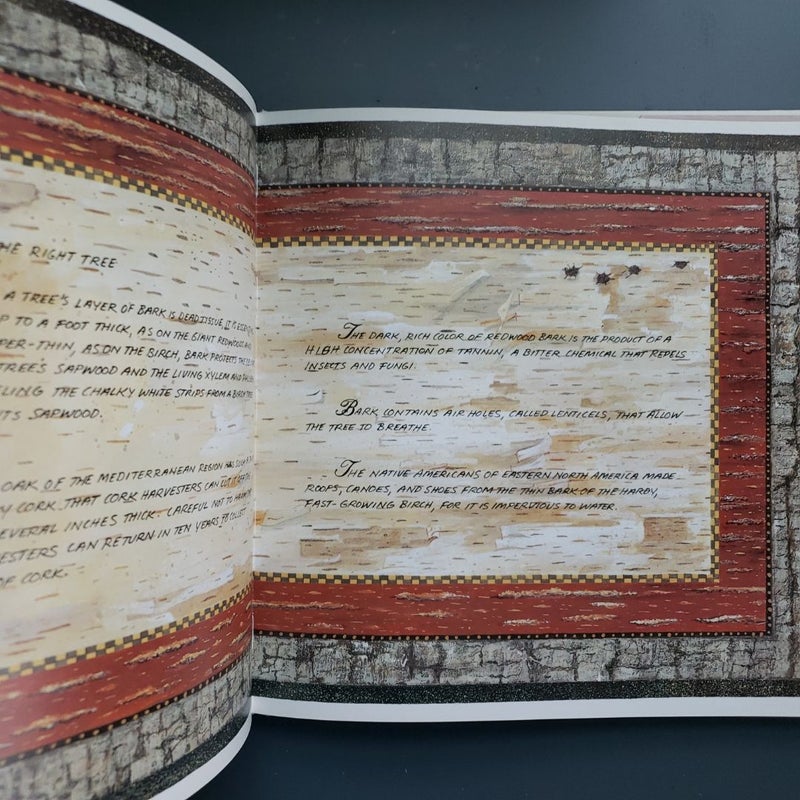 HE RIGHT TREE
A TREE'S LAYER OF BARK IS DEAD TISSUE, IT IS
P TO A FOOT THICK, AS ON THE GIANT REDWOOD,
PER-THIN, AS ON THE BIRCH, BARK PROTECTS THE
TREE'S SAPWOOD AND THE LIVING XYLEM AND
LING THE CHALKY WHITE STRIPS FROM A BIRCH TREE
ITS SAPWOOD.
OAK OF THE MEDITERRANEAN REGION HAS
Y CORK THAT CORK HARVESTERS CAN CUT IT
EVERAL INCHES THICK. CAREFUL NOT TO HARM
ESTERS CAN RETURN IN TEN YEARS TO COLLECT
OF CORK.
THE DARK, RICH COLOR OF REDWOOD BARK IS THE PRODUCT OF A
HIGH CONCENTRATION OF TANNIN, A BITTER CHEMICAL THAT REPELS
INSECTS AND FUNGI.
BARK CONTAINS AIR HOLES, CALLED LENTICELS, THAT ALLOW
THE TREE TO BREATHE.
THE NATIVE AMERICANS OF EASTERN NORTH AMERICA MADE
ROOFS, CANOES, AND SHOES FROM THE THIN BARK OF THE HARDY,
FAST-GROWING BIRCH, FOR IT IS IMPERVIOUS TO WATER.